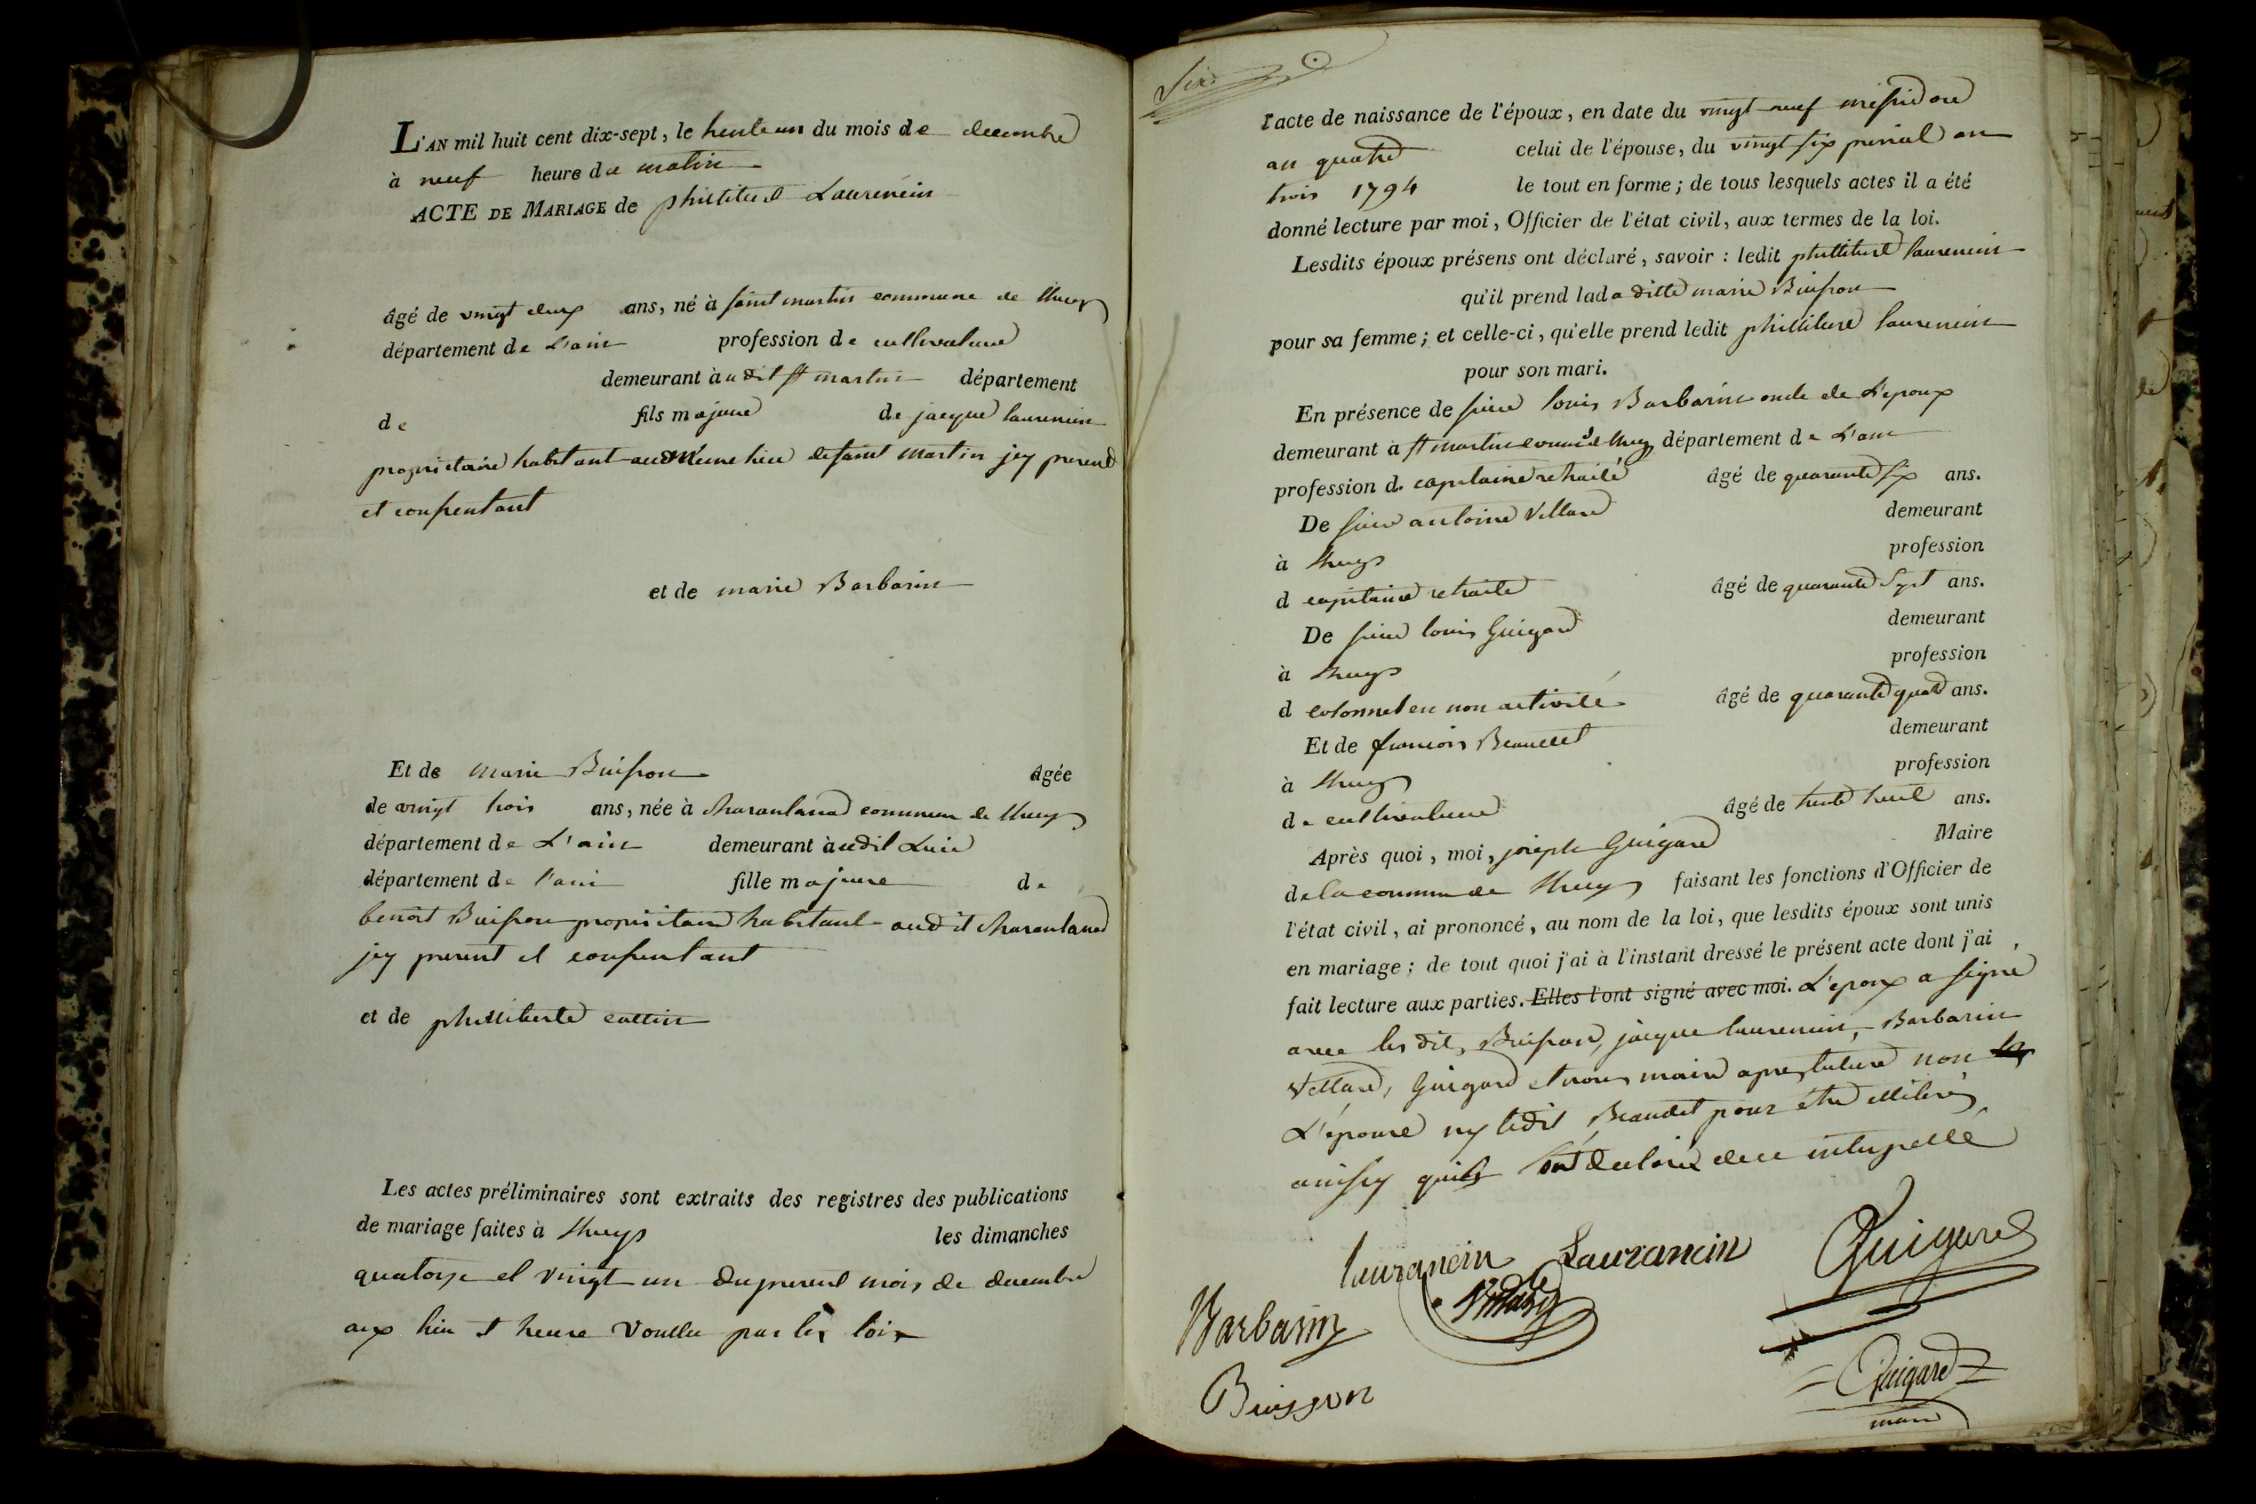 L'AN mil huit cent dix-sept, le trente un du mois de decembre
à neuf heure du matin
ACTE DE MARIAGE de philibert Laurencin
âgé de vingt deux ans, né à saint martin commune de lhuys
département de L'ain profession de cultivateur
demeurant audit st martin département
de fils majeur de jacque laurencin
proprietaire habitant au même lieu de saint martin jcy present
et consentant
et de marie Barbarin
Et de marie Buisson âgée
de vingt trois ans, née à Charantanod commune de lhuys
département de L'ain demeurant audit Lieu
département de l'ain fille majeure de
benoit Buisson proprietaire habitant audit charantanod
jcy present et consentant
et de philliberte cattin
Les actes préliminaires sont extraits des registres des publications
de mariage faites à lhuys les dimanches
quatorze et vingt un du present mois de decembre
aux lieu et heure voullu par les loix
six
l'acte de naissance de l'époux, en date du vingt neuf messidor
an quatre celui de l'épouse, du vingt six prerial an
trois 1794 le tout en forme; de tous lesquels actes il a été
donné lecture par moi, Officier de l'état civil, aux termes de la loi.
Lesdits époux présens ont déclaré, savoir: ledit philibert laurencin
qu'il prend lada ditte marie Buisson
pour sa femme; et celle-ci, qu'elle prend ledit philibert laurencin
pour son mari.
En présence de sieur louis Barbarin oncle de L'epoux
demeurant à st martin comune de lhuys département de L'ain
profession de capitaine retraité âgé de quarante six ans.
De sieur antoine Vettard demeurant
à lhuys profession
d capitaine retraité âgé de quarante sept ans.
De sieur louis Guigard demeurant
à lhuys profession
d colonnel en non activité âgé de quarante quatre ans.
Et de francois Beaudet demeurant
à lhuys profession
de cultivateur âgé de trente huit ans.
Après quoi, moi, joseph Guigard Maire
de la commune de lhuys faisant les fonctions d'Officier de
l'état civil, ai prononcé, au nom de la loi, que lesdits époux sont unis
en mariage; de tout quoi j'ai à l'instant dressé le présent acte dont j'ai
fait lecture aux parties. Elles l'ont signé avec moi. L'epoux a signé
avec les dits Buisson, jacque laurencin, Barbarin
Vettard, Guigard et nous maire apres lecture non
L'épouse ny ledit Beaudet pour être illiterés
ainsy quils ont declarés de ce interpellé
laurancin Laurancin Guigard
Barbarin
Buisson
Guigard
maire